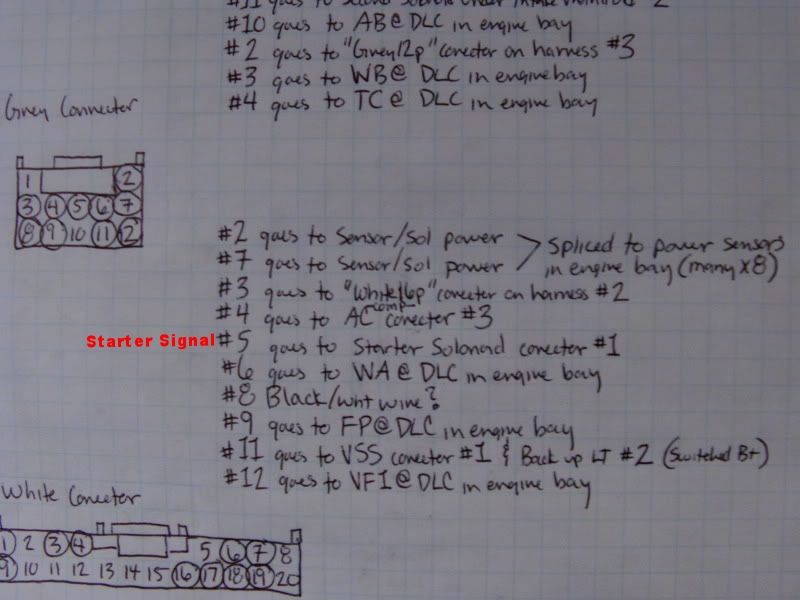 #11 goes to second solenoid under intake manifold 2
#10 goes to AB@ DLC in engine bay
#2 goes to "Grey12p" conector on harness #3
#3 goes to WB@ DLC in engine bay
#4 goes to TC@ DLC in engine bay
Grey Connector
1 2
3 4 5 6 7
8 9 10 11 12
#2 goes to Sensor/Sol power
#7 goes to Sensor/Sol power
Spliced to power sensors
in engine bay (many x8)
#3 goes to "White16p" conector on harness #2
#4 goes to AC comp conecter #3
Starter Signal
#5 goes to Starter Solonoid conector #1
#6 goes to WA@ DLC in engine bay
#8 Black/wht wire?
#9 goes to FP@DLC in engine bay
#11 goes to VSS conector #1 & Back up LT #2 (Switched B+)
#12 goes to VF1@DLC in engine bay
White Conector
1 2 3 4 5 6 7 8
9 10 11 12 13 14 15 16 17 18 19 20